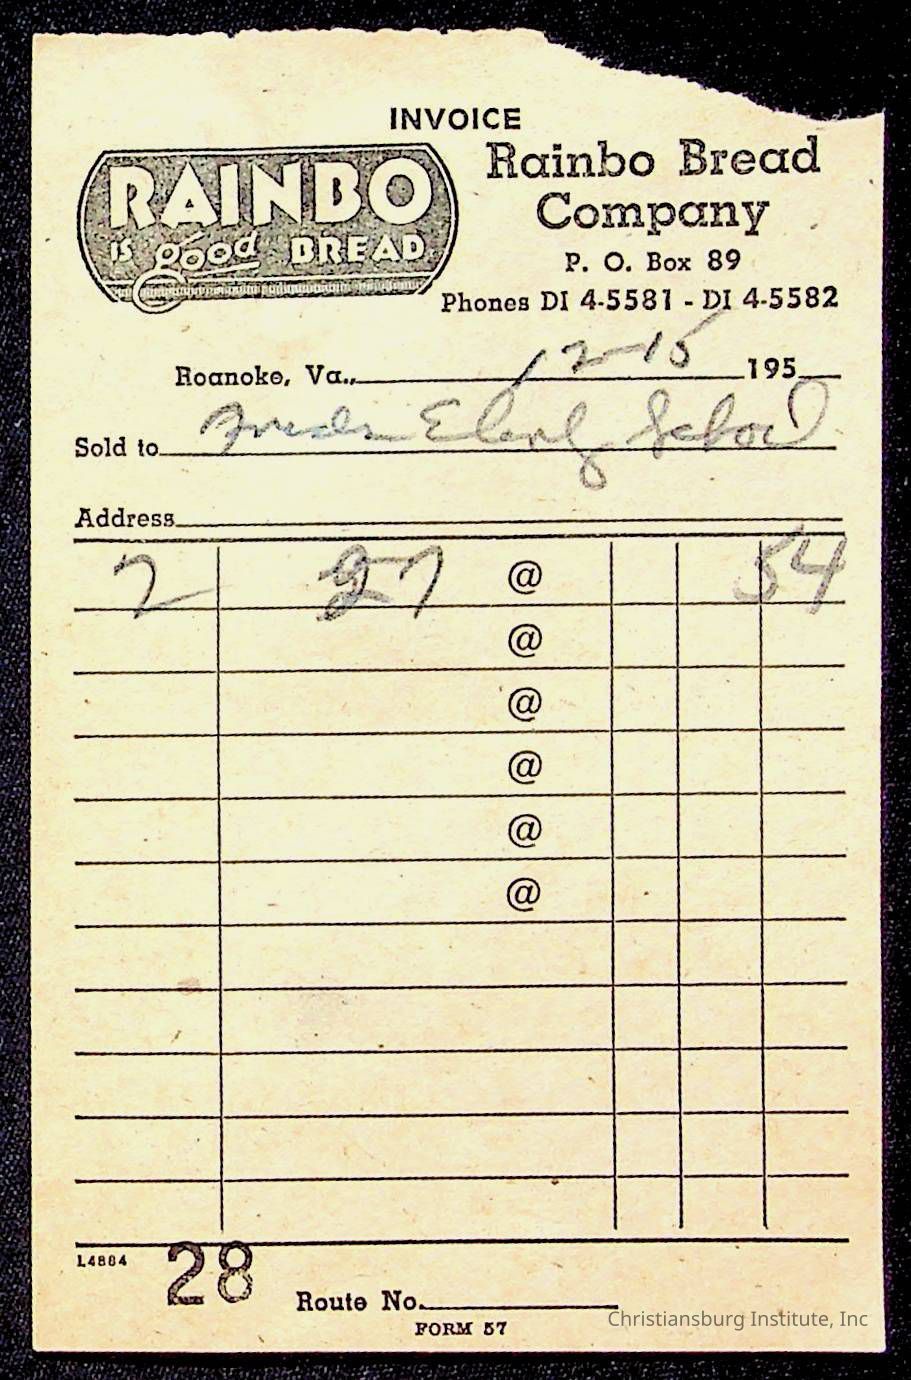 INVOICE
RAINBO
IS good BREAD
Rainbo Bread
Company
P. O. Box 89
Phones DI 4-5581 - DI 4-5582
Roanoke, Va., 12-15 195
Sold to School
Address
2 27 @ 54
@
@
@
@
@
L4884 28
Route No.
FORM 57
Christiansburg Institute, Inc